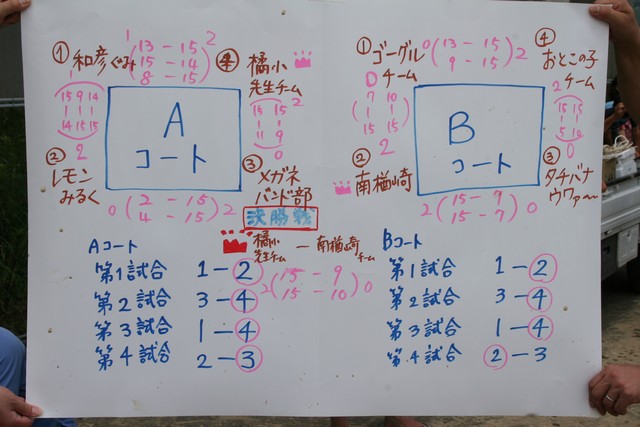 ① 和彦ぐみ
1 (13 - 15) 2
15 - 14
8 - 15
④ 橘小
先生チーム
1
15 9 14
1 1 1
14 15 15
2
A
コート
2
15 15
1 1
11 9
0
② レモン
みるく
0 (2 - 15) 2
4 - 15
③ メガネ
バンド部
① ゴーグル
チーム
0 (13 - 15) 2
9 - 15
④
おとこの子
チーム
0
7 10
1 1
15 15
2
B
コート
2
15 15
1 1
5 10
0
② 南楢崎
2 (15 - 9) 0
15 - 7
③
タチバナ
ウワァ〜
決勝戦
橘小
先生チーム
— 南楢崎
チーム
2 (15 - 9) 0
15 - 10
Aコート
第1試合 1-②
第2試合 3-④
第3試合 1-④
第4試合 2-③
Bコート
第1試合 1-②
第2試合 3-④
第3試合 1-④
第4試合 ②-3